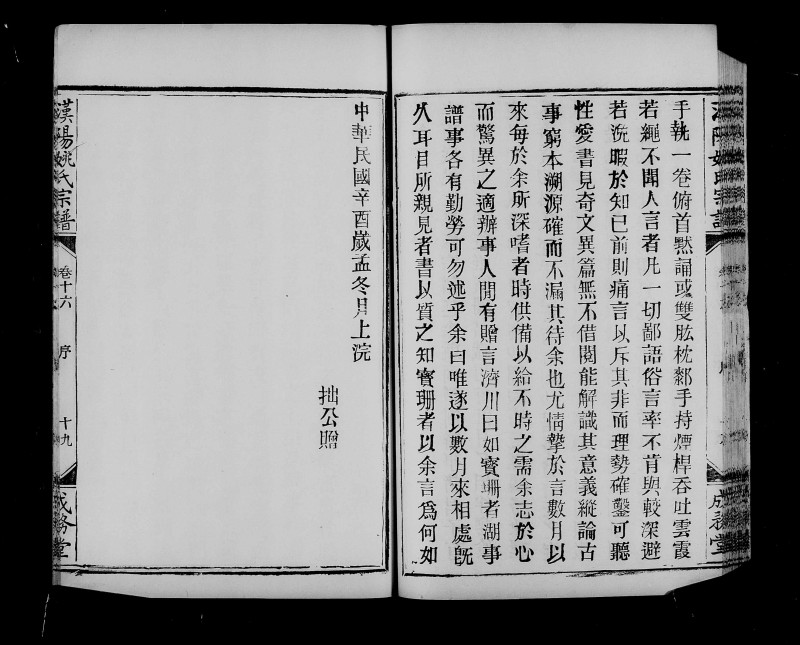 手執一卷俯首黙誦或雙肱枕鄰手持煙桿吞吐雲霞
若繩不聞人言者凡一切鄙語俗言率不肯與較深避
若浼暇於知已前則痛言以斥其非而理勢確鑿可聽
性愛書見奇文異篇無不借閱能解識其意義縱論古
事窮本溯源確而不漏其待余也尤情摯於言數月以
來每於余所深嗜者時供備以給不時之需余志於心
而驚異之適辦事人閒有贈言濟川曰如寳珊者湖事
譜事各有勤勞可勿述乎余曰唯遂以數月來相處旣
久耳目所親見者書以質之知寳珊者以余言為何如
中華民國辛酉歲孟冬月上浣
拙公贈
漢陽姚氏宗譜
卷十六
序
十九
成務堂
漢陽姚氏宗譜
成務堂